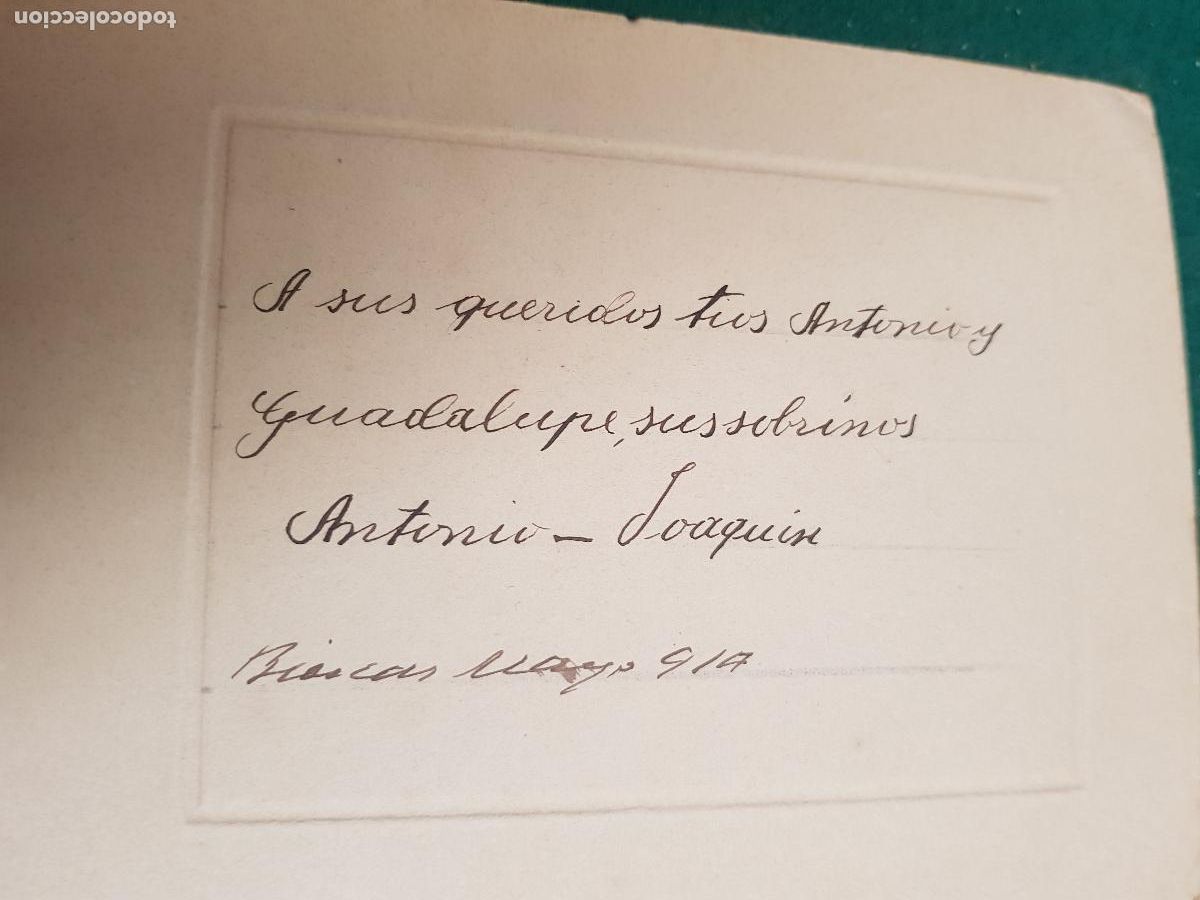 todocoleccion
A sus queridos tios Antonio y
Guadalupe, sus sobrinos
Antonio — Joaquin
Biescas Mayo 917